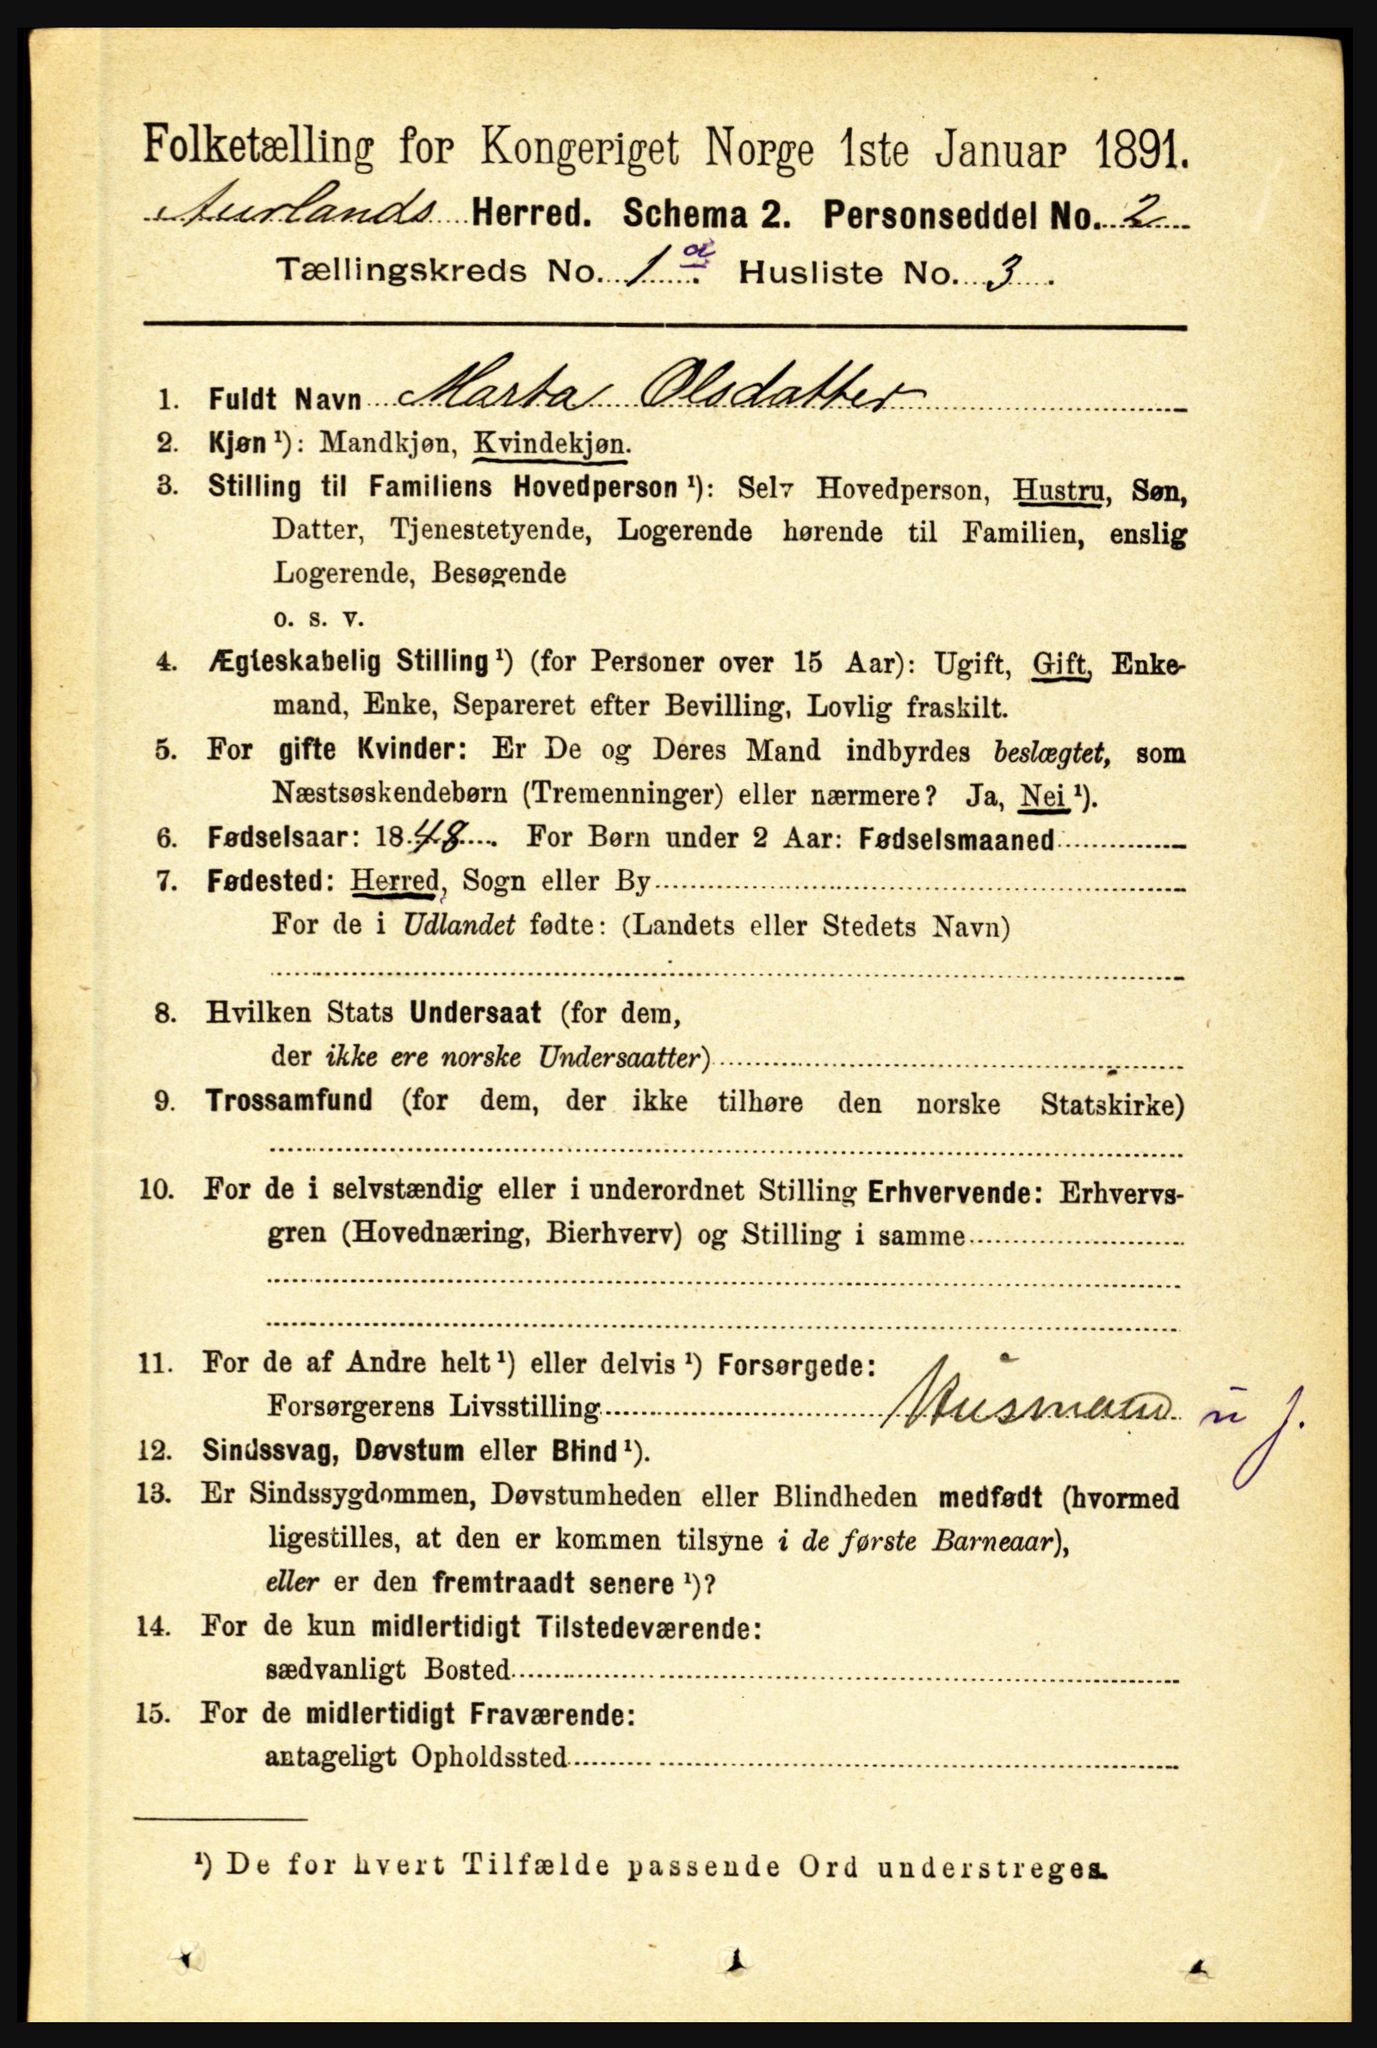 Folketælling for Kongeriget Norge 1ste Januar 1891.
Aurlands Herred. Schema 2. Personseddel No. 2
Tællingskreds No. 1 a. Husliste No. 3.
1. Fuldt Navn Marta Olsdatter
2. Kjøn ¹): Mandkjøn, Kvindekjøn.
3. Stilling til Familiens Hovedperson ¹): Selv Hovedperson, Hustru, Søn,
Datter, Tjenestetyende, Logerende hørende til Familien, enslig
Logerende, Besøgende
o. s. v.
4. Ægteskabelig Stilling ¹) (for Personer over 15 Aar): Ugift, Gift, Enke-
mand, Enke, Separeret efter Bevilling, Lovlig fraskilt.
5. For gifte Kvinder: Er De og Deres Mand indbyrdes beslægtet, som
Næstsøskendebørn (Tremenninger) eller nærmere? Ja, Nei ¹).
6. Fødselsaar: 1848. For Børn under 2 Aar: Fødselsmaaned
7. Fødested: Herred, Sogn eller By
For de i Udlandet fødte: (Landets eller Stedets Navn)
8. Hvilken Stats Undersaat (for dem,
der ikke ere norske Undersaatter)
9. Trossamfund (for dem, der ikke tilhøre den norske Statskirke)
10. For de i selvstændig eller i underordnet Stilling Erhvervende: Erhvervs-
gren (Hovednæring, Bierhverv) og Stilling i samme
11. For de af Andre helt ¹) eller delvis ¹) Forsørgede:
Forsørgerens Livsstilling Husmand u j.
12. Sindssvag, Døvstum eller Blind ¹).
13. Er Sindssygdommen, Døvstumheden eller Blindheden medfødt (hvormed
ligestilles, at den er kommen tilsyne i de første Barneaar),
eller er den fremtraadt senere ¹)?
14. For de kun midlertidigt Tilstedeværende:
sædvanligt Bosted
15. For de midlertidigt Fraværende:
antageligt Opholdssted
¹) De for hvert Tilfælde passende Ord understreges.